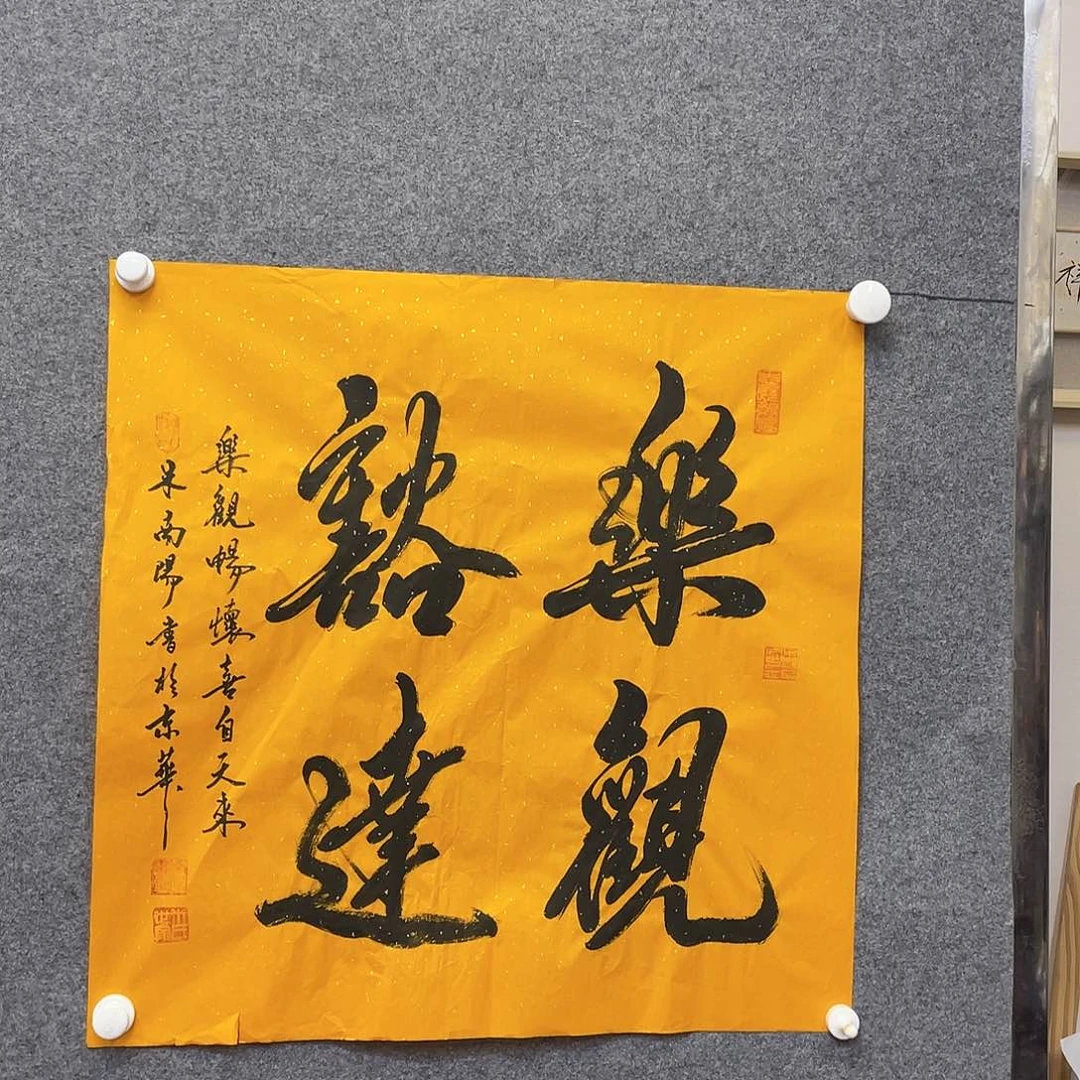 樂觀
豁達
樂觀暢懷喜自天來
南陽書於京華